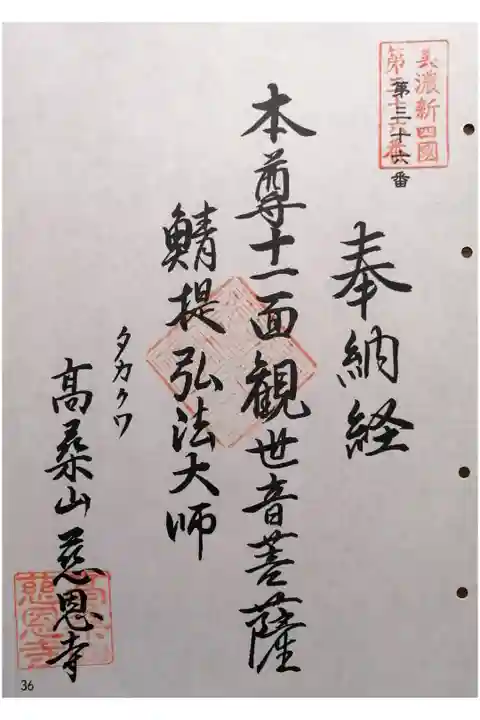 美濃新四國
第三十六番
第三十六番
奉納経
本尊十一面観世音菩薩
鯖提弘法大師
タカクワ
高桑山慈恩寺
慈恩寺
36